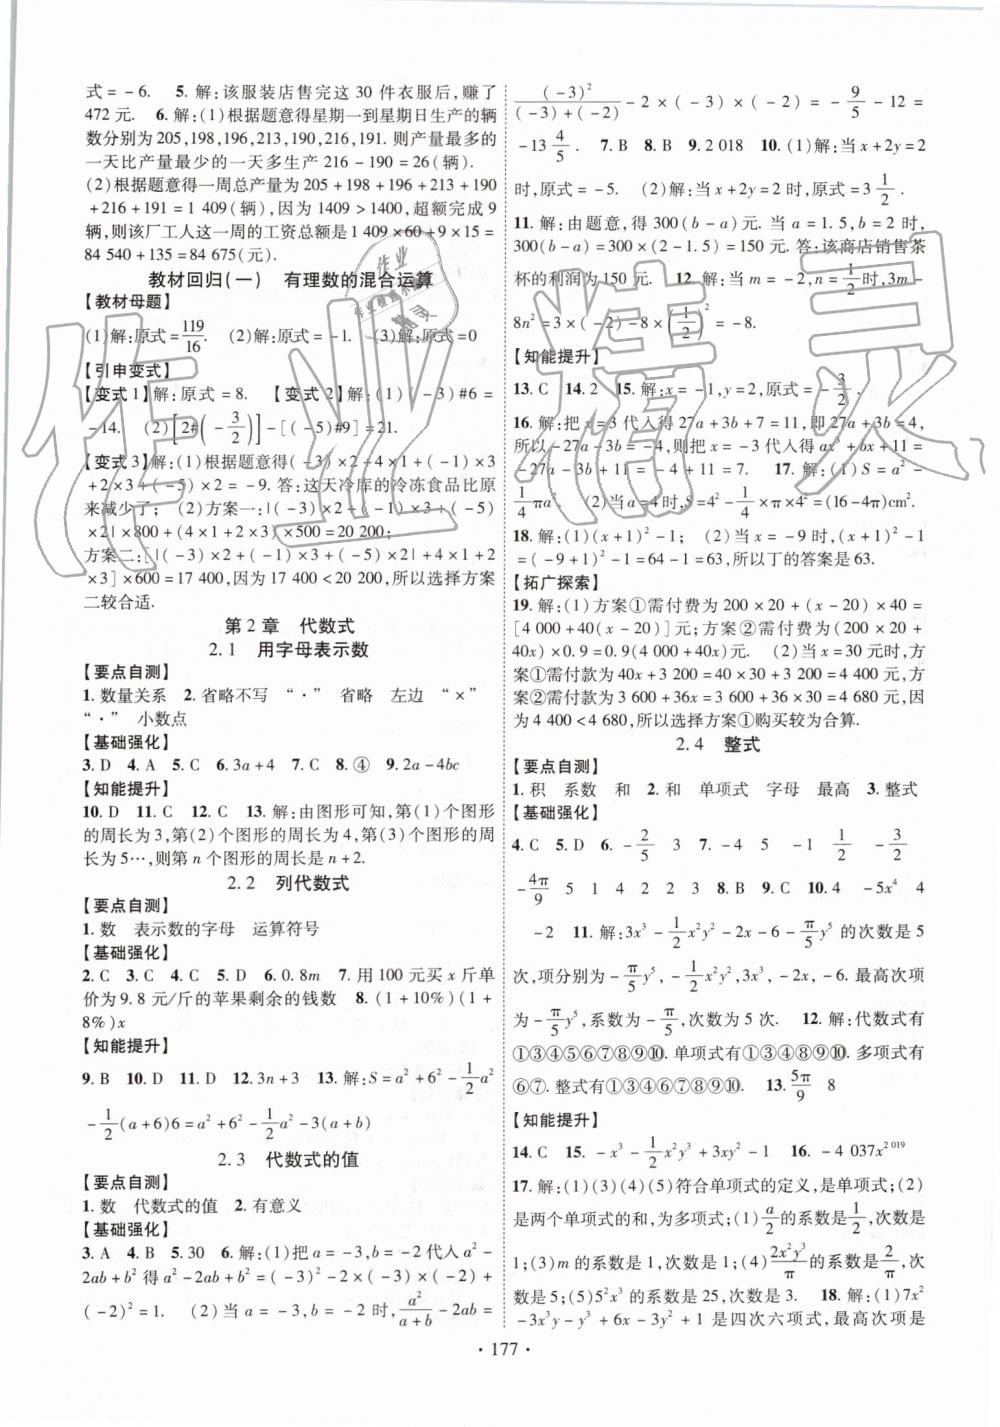 式=-6. 5. 解:该服装店售完这 30 件衣服后,赚了
472 元. 6. 解:(1)根据题意得星期一到星期日生产的辆
数分别为 205,198,196,213,190,216,191. 则产量最多的
一天比产量最少的一天多生产 216-190=26(辆).
(2)根据题意得一周总产量为 205+198+196+213+190
+216+191=1 409(辆),因为 1409>1400,超额完成 9
辆,则该厂工人这一周的工资总额是 1 409×60+9×15=
84 540+135=84 675(元).
教材回归(一) 有理数的混合运算
【教材母题】
(1)解:原式=119/16. (2)解:原式=-1. (3)解:原式=0
【引申变式】
【变式 1】解:原式=8. 【变式 2】解:(1)(-3)#6=
-14. (2)[2#(-3/2)]-[(-5)#9]=21.
【变式 3】解:(1)根据题意得(-3)×2+4×1+(-1)×3
+2×3+(-5)×2=-9. 答:这天冷库的冷冻食品比原
来减少了; (2)方案一:|(-3)×2+(-1)×3+(-5)
×2|×800+(4×1+2×3)×500=20 200;
方案二:[|(-3)×2+(-1)×3+(-5)×2|+4×1+2
×3]×600=17 400,因为 17 400<20 200,所以选择方案
二较合适.
第 2 章 代数式
2.1 用字母表示数
【要点自测】
1. 数量关系 2. 省略不写 “·” 省略 左边 “×”
“·” 小数点
【基础强化】
3. D 4. A 5. C 6. 3a+4 7. C 8. ④ 9. 2a-4bc
【知能提升】
10. D 11. C 12. C 13. 解:由图形可知,第(1)个图形
的周长为 3,第(2)个图形的周长为 4,第(3)个图形的周
长为 5…,则第 n 个图形的周长是 n+2.
2.2 列代数式
【要点自测】
1. 数 表示数的字母 运算符号
【基础强化】
2. C 3. C 4. C 5. D 6. 0.8m 7. 用 100 元买 x 斤单
价为 9.8 元/斤的苹果剩余的钱数 8. (1+10%)(1+
8%)x
【知能提升】
9. B 10. D 11. D 12. 3n+3 13. 解:S=a²+6²-1/2a²
-1/2(a+6)6=a²+6²-1/2a²-3(a+b)
2.3 代数式的值
【要点自测】
1. 数 代数式的值 2. 有意义
【基础强化】
3. A 4. B 5. 30 6. 解:(1)把 a=-3,b=-2 代入 a²-
2ab+b² 得 a²-2ab+b²=(-3)²-2×(-3)×(-2)+
(-2)²=1. (2)当 a=-3,b=-2 时,a²/(a+b)-2ab=
(-3)²/((-3)+(-2))-2×(-3)×(-2)=-9/5-12=
-13 4/5. 7. B 8. B 9. 2 018 10. (1)解:当 x+2y=2
时,原式=-5. (2)解:当 x+2y=2 时,原式=3 1/2.
11. 解:由题意,得 300(b-a)元. 当 a=1.5,b=2 时,
300(b-a)=300×(2-1.5)=150. 答:该商店销售茶
杯的利润为 150 元. 12. 解:当 m=-2,n=1/2时,3m-
8n²=3×(-2)-8×(1/2)²=-8.
【知能提升】
13. C 14. 2 15. 解:x=-1,y=2,原式=-3/2.
16. 解:把 x=3 代入得 27a+3b+7=11,即 27a+3b=4,
所以-27a-3b=-4. 则把 x=-3 代入得 ax³+bx+11=
-27a-3b+11=-4+11=7. 17. 解:(1)S=a²-
1/4πa². (2)当 a=4 时,S=4²-1/4×π×4²=(16-4π)cm².
18. 解:(1)(x+1)²-1; (2)当 x=-9 时,(x+1)²-1
=(-9+1)²-1=64-1=63,所以丁的答案是 63.
【拓广探索】
19. 解:(1)方案①需付费为 200×20+(x-20)×40=
[4 000+40(x-20)]元;方案②需付费为(200×20+
40x)×0.9=0.9(4 000+40x)元. (2)当 x=30 元时,方
案①需付款为 40x+3 200=40×30+3 200=4 400 元,
方案②需付款为 3 600+36x=3 600+36×30=4 680 元,
因为 4 400<4 680,所以选择方案①购买较为合算.
2.4 整式
【要点自测】
1. 积 系数 和 2. 和 单项式 字母 最高 3. 整式
【基础强化】
4. C 5. D 6. -2/5 3 7. -4 5 -1 1/2 -3/2
-4π/9 5 1 4 2 2 8. B 9. C 10. 4 -5x⁴ 4
-2 11. 解:3x³-1/2x²y²-2x-6-π/5y⁵ 的次数是 5
次,项分别为-π/5y⁵,-1/2x²y²,3x³,-2x,-6. 最高次项
为-π/5y⁵,系数为-π/5,次数为 5 次. 12. 解:代数式有
①③④⑤⑥⑦⑧⑨⑩. 单项式有①③④⑧⑨⑩. 多项式有
⑥⑦. 整式有①③④⑥⑦⑧⑨⑩. 13. 5π/9 8
【知能提升】
14. C 15. -x³-1/2x²y+3xy²-1 16. -4 037x²⁰¹⁹
17. 解:(1)(3)(4)(5)符合单项式的定义,是单项式;(2)
是两个单项式的和,为多项式;(1)a/2的系数是1/2,次数是
1;(3)m 的系数是 1,次数是 1;(4)2x²y³/π的系数是2/π,次
数是 5;(5)5²x³ 的系数是 25,次数是 3. 18. 解:(1)7x²
-3x³y-y³+6x-3y²+1 是四次六项式,最高次项是
·177·
作业精灵